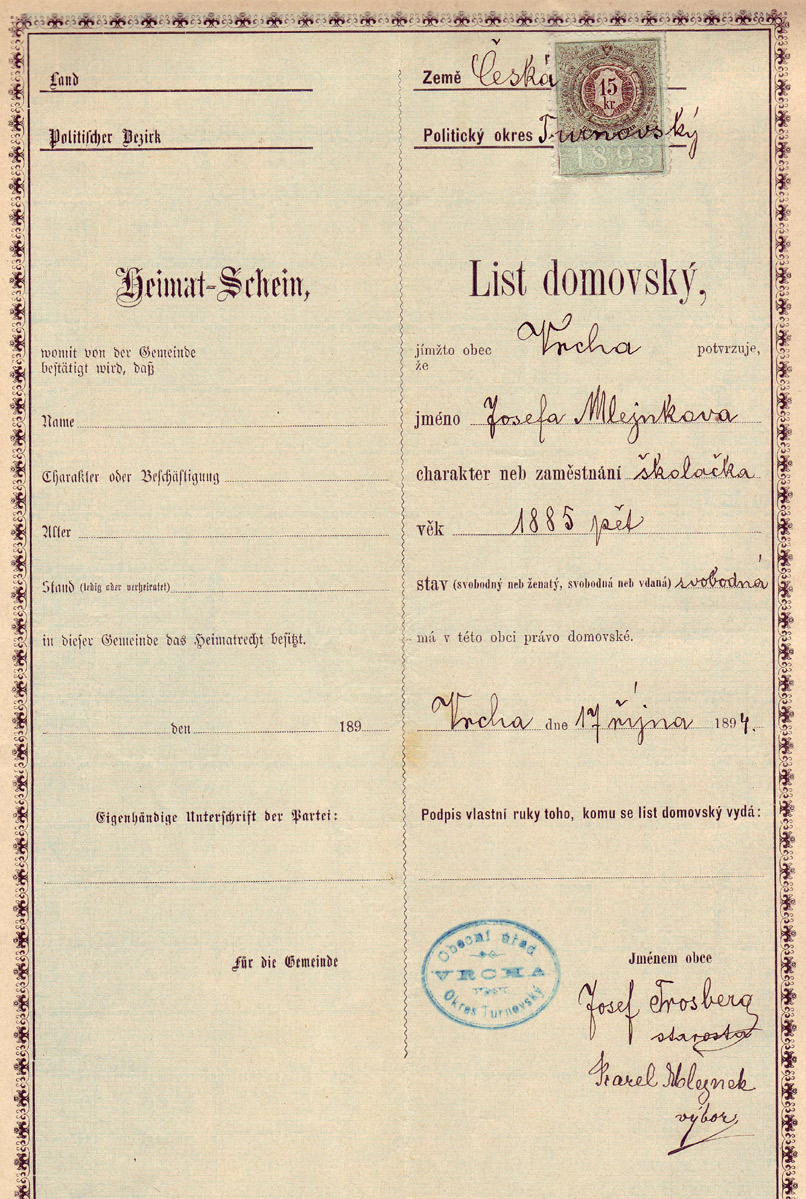 Land
Politischer Bezirk
Země Česká
15
kr
Politický okres Turnovský
1893
Heimat-Schein,
womit von der Gemeinde
bestätigt wird, daß
Name
Charakter oder Beschäftigung
Alter
Stand (ledig oder verheiratet)
in dieser Gemeinde das Heimatrecht besitzt.
den 189
Eigenhändige Unterschrift der Partei:
Für die Gemeinde
List domovský,
jímžto obec Vrcha potvrzuje,
že
jméno Josefa Mlejnkova
charakter neb zaměstnání školačka
věk 1885 pět
stav (svobodný neb ženatý, svobodná neb vdaná) svobodná
má v této obci právo domovské.
Vrcha dne 17 října 1894.
Podpis vlastní ruky toho, komu se list domovský vydá:
Obecní úřad
VRCHA
Okres Turnovský
Jménem obce
Josef Frosberg
starosta
Karel Mlejnek
výbor